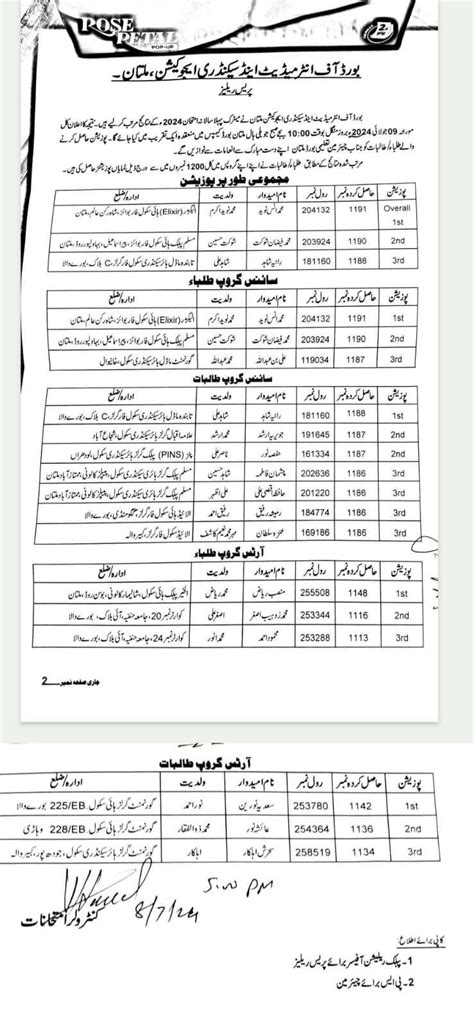 POSE
PETAL
POP-UP
بورڈ آف انٹرمیڈیٹ اینڈ سیکنڈری ایجوکیشن، ملتان۔
پریس ریلیز
بورڈ آف انٹرمیڈیٹ اینڈ سیکنڈری ایجوکیشن ملتان نے میٹرک پہلا سالانہ امتحان 2024ء کے نتائج مرتب کر لیے ہیں۔ نتیجہ کا اعلان کل
مورخہ 09 جولائی 2024ء بروز منگل بوقت 10:00 بجے صبح جوبلی ہال ملتان بورڈ کیمپس میں منعقدہ ایک تقریب میں کیا جائے گا۔ پوزیشن
والے طلباء/طالبات کو جناب چیئرمین تعلیمی بورڈ ملتان اپنے دست مبارک سے انعامات سے نوازیں گے۔
مرتب شدہ نتائج کے مطابق طلباء/طالبات نے اپنے اپنے گروپس میں کل 1200 نمبروں میں سے درج ذیل نمایاں پوزیشنز حاصل کی ہیں۔
مجموعی طور پر پوزیشن
پوزیشن حاصل کردہ نمبر رول نمبر نام امیدوار ولدیت ادارہ/ضلع
Overall 1st 1191 204132 محمد انس نوید محمد نوید اکرم الیگزر (Elixir) ہائی سکول فار بوائز، شاہ رکن عالم، ملتان
2nd 1190 203924 محمد فیضان شوکت شوکت حسین مسلم پبلک ہائی سکول فار بوائز، بہاولپور روڈ، ملتان
3rd 1188 181160 رانیہ شاہد شاہد علی تابندہ ماڈل ہائر سیکنڈری سکول فار گرلز، C بلاک، بورے والا
سائنس گروپ طلباء
پوزیشن حاصل کردہ نمبر رول نمبر نام امیدوار ولدیت ادارہ/ضلع
1st 1191 204132 محمد انس نوید محمد نوید اکرم الیگزر (Elixir) ہائی سکول فار بوائز، شاہ رکن عالم، ملتان
2nd 1190 203924 محمد فیضان شوکت شوکت حسین مسلم پبلک ہائی سکول فار بوائز، بہاولپور روڈ، ملتان
3rd 1187 119034 علی بن عبداللہ محمد عبداللہ گورنمنٹ ماڈل ہائر سیکنڈری سکول، خانیوال
سائنس گروپ طالبات
پوزیشن حاصل کردہ نمبر رول نمبر نام امیدوار ولدیت ادارہ/ضلع
1st 1188 181160 رانیہ شاہد شاہد علی تابندہ ماڈل ہائر سیکنڈری سکول فار گرلز، C بلاک، بورے والا
2nd 1187 191645 جویریہ ارشد محمد ارشد علامہ اقبال گرلز ہائر سیکنڈری سکول، شجاع آباد
2nd 1187 161334 ناصر علی پنز (PINS) پبلک گرلز ہائر سیکنڈری سکول، لودھراں
3rd 1186 202636 فاطمہ شاہد حسین مسلم پبلک گرلز ہائر سیکنڈری سکول، پیپلز کالونی، ممتاز آباد ملتان
3rd 1186 201220 حافظہ علی اظہر مسلم پبلک گرلز ہائر سیکنڈری سکول، پیپلز کالونی، ممتاز آباد ملتان
3rd 1186 184774 رمیعہ رفیق رفیق احمد الائیڈ ہائی سکول فار گرلز، گگو منڈی، بورے والا
3rd 1186 169186 عنزہ سلطان مہر محمد کاشف الائیڈ سکول فار گرلز، کبیروالہ
آرٹس گروپ طلباء
پوزیشن حاصل کردہ نمبر رول نمبر نام امیدوار ولدیت ادارہ/ضلع
1st 1148 255508 ریاض محمد ریاض الخیر پبلک ہائی سکول، شالیمار کالونی، بوسن روڈ، ملتان
2nd 1116 253344 محمد زوہیب اصغر اصغر علی کوارٹر نمبر 20، جامعہ حنفیہ، آئی بلاک، بورے والا
3rd 1113 253288 محمود احمد محمد انور کوارٹر نمبر 24، جامعہ حنفیہ، آئی بلاک، بورے والا
جاری صفحہ نمبر 2
آرٹس گروپ طالبات
پوزیشن حاصل کردہ نمبر رول نمبر نام امیدوار ولدیت ادارہ/ضلع
1st 1142 253780 سعدیہ نورین نور احمد گورنمنٹ گرلز ہائی سکول 225/EB بورے والا
2nd 1136 254364 عائشہ نور محمد ذوالفقار گورنمنٹ گرلز ہائی سکول 228/EB وہاڑی
3rd 1134 258519 سحرش گورنمنٹ گرلز ہائر سیکنڈری سکول، جودھ پور، کبیروالہ
5.00 PM
8/7/24
کنٹرولر امتحانات
کاپی برائے اطلاع:
1- پبلک ریلیشن آفیسر برائے پریس ریلیز
2- پی ایس برائے چیئرمین